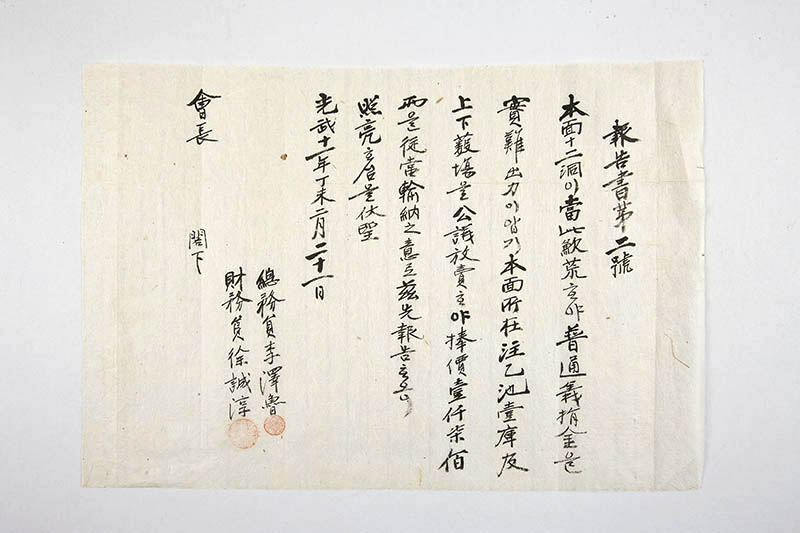 報告書第二號
本面十二洞이當此歉荒ᄒᆞ야普通義捐金은
實難出力이압기本面所在注乙池壹庫及
上下藪場을公議放賣ᄒᆞ야捧價壹仟柒佰
兩을從當輸納之意로玆先報告ᄒᆞ오니
照亮ᄒᆞ심을伏望
光武十一年丁未二月二十一日
總務員李澤魯
財務員徐誠淳
會長 閣下